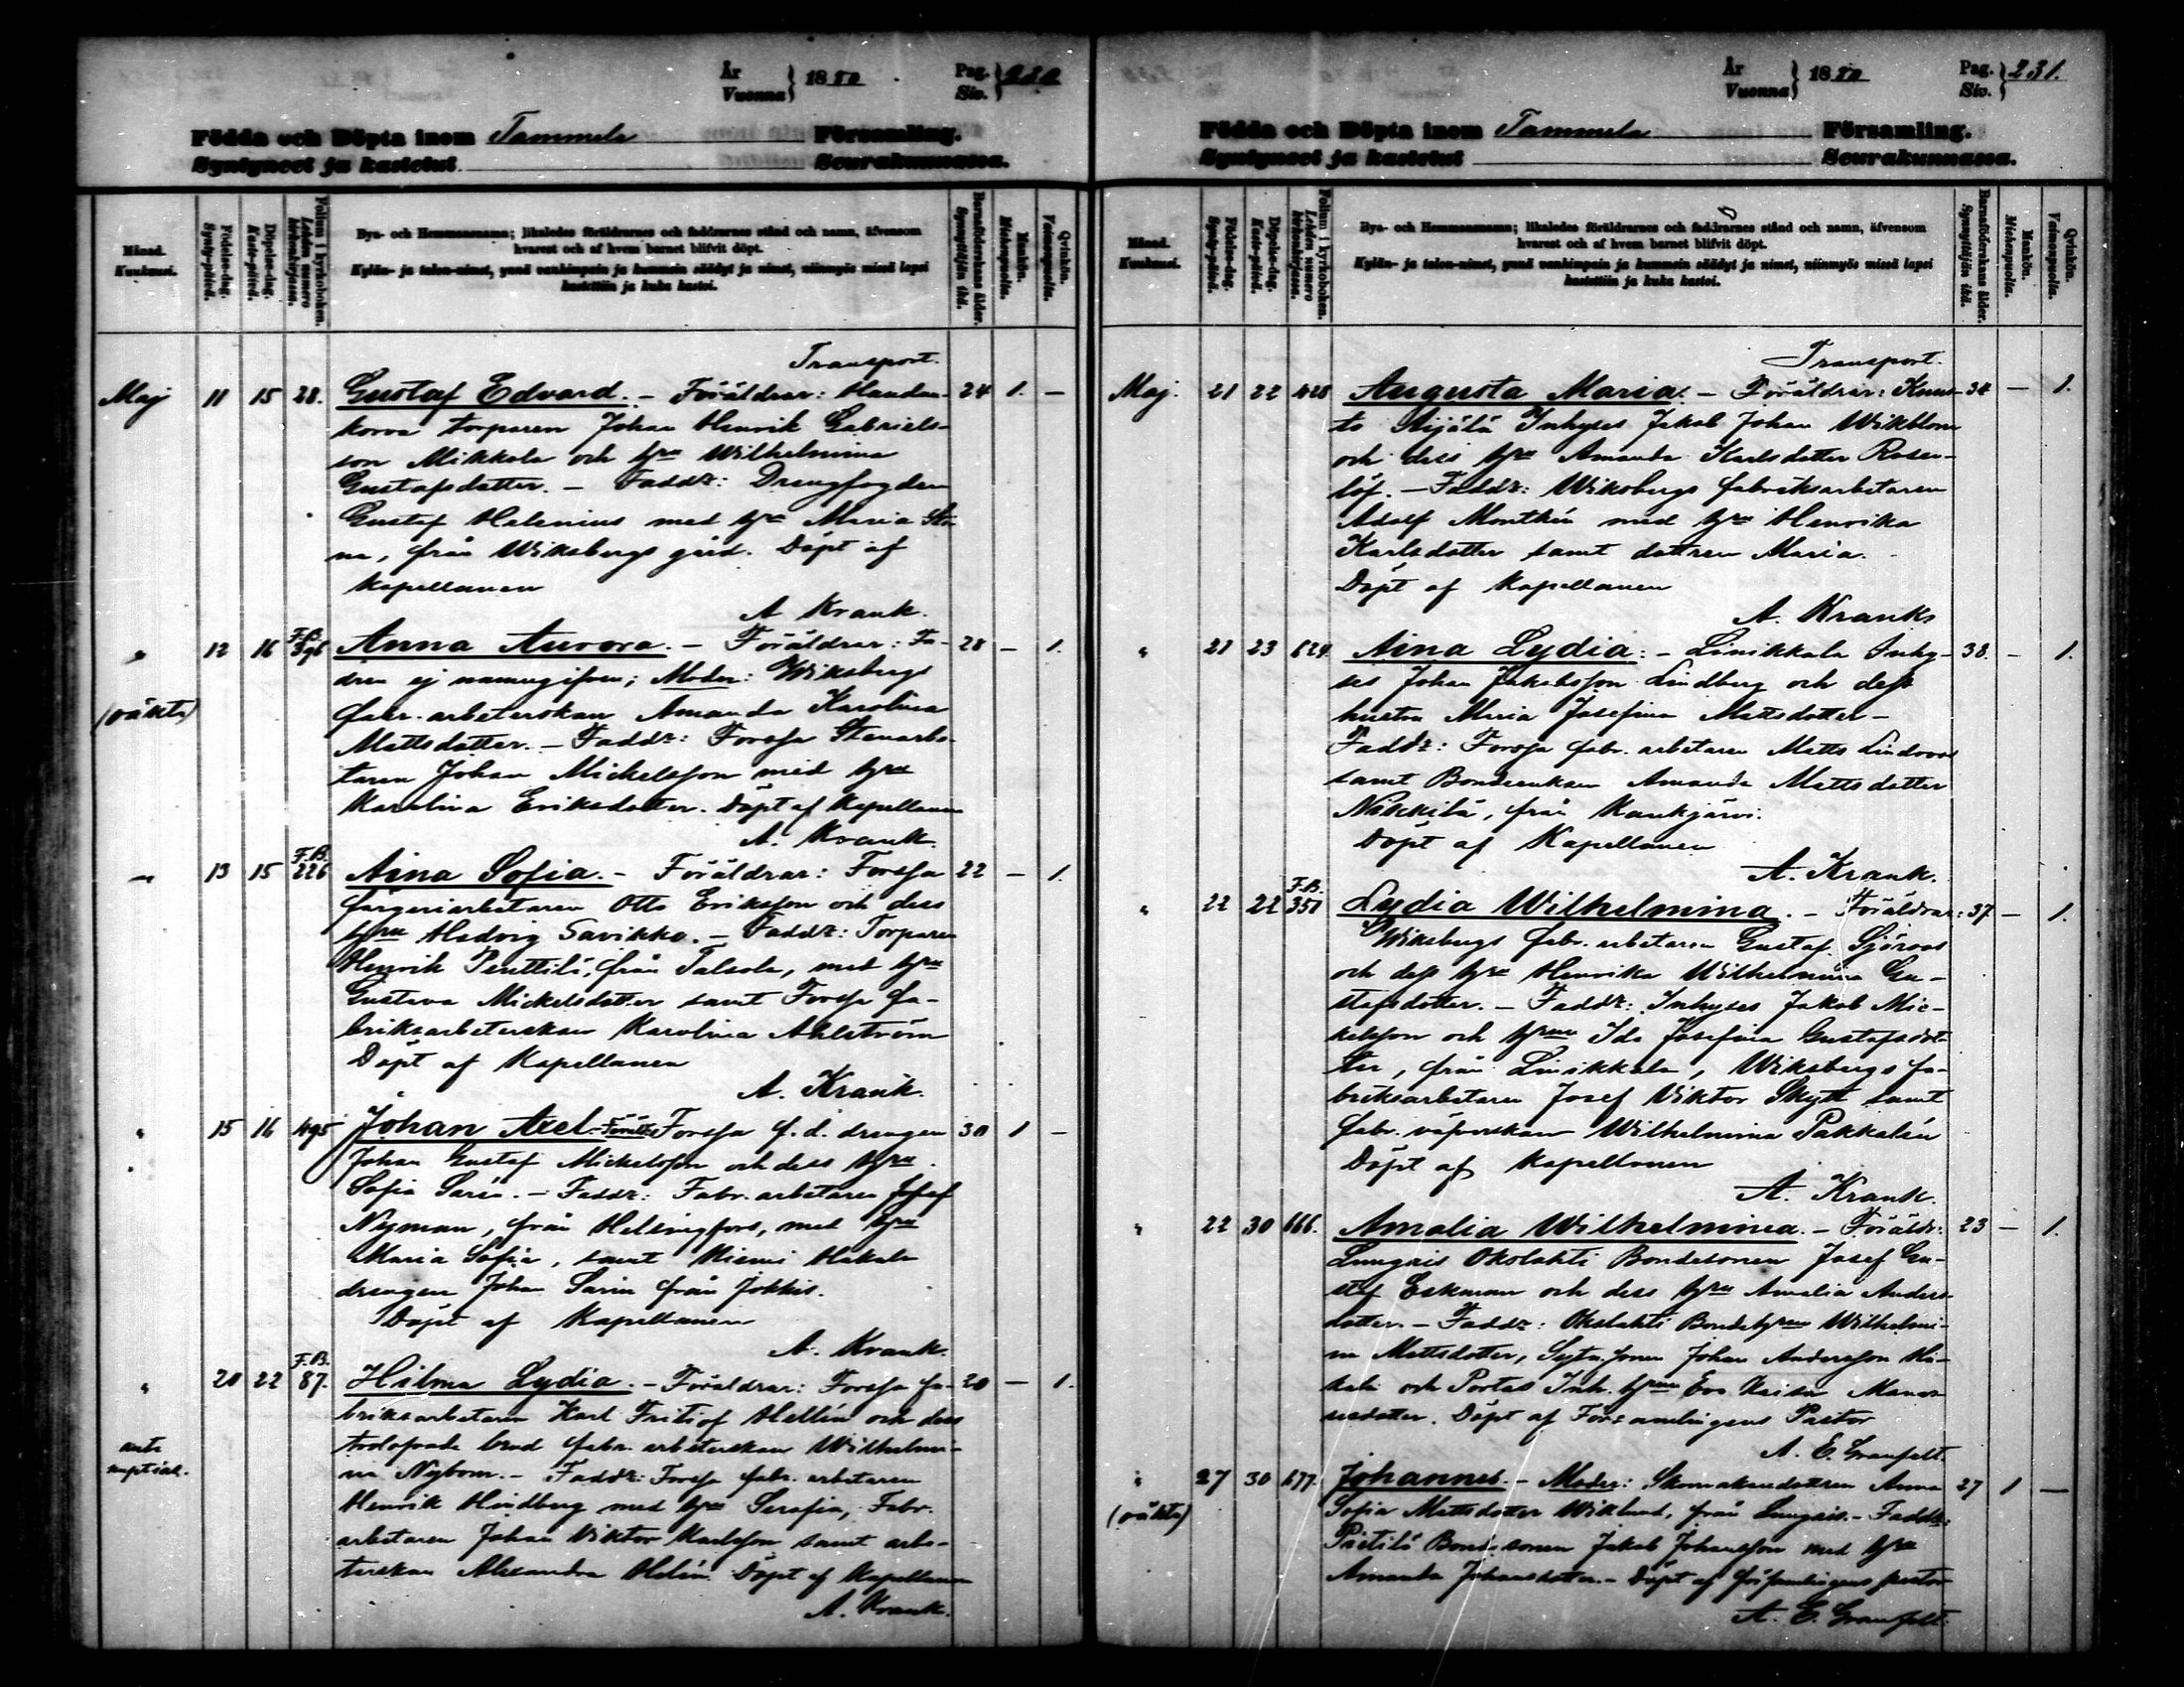 År
Vuonna } 1880 Pag.
Siv. } 230
Födda och Döpta inom Tammela Församling.
Syntyneet ja kastetut Seurakunnassa.
Månad.
Kuukausi.
Födelse-dag.
Synty-päivä.
Döpelse-dag.
Kaste-päivä.
Folium i kyrkoboken.
Lehden numero kirkonkirjassa.
Bya- och Hemmansnamn; likaledes föräldrarnes och faddrarnes stånd och namn, äfvensom
hvarest och af hvem barnet blifvit döpt.
Kylän- ja talon-nimet, ynnä vanhimpain ja kummein säädyt ja nimet, niinmyös missä lapsi
kastettiin ja kuka kastoi.
Barnaföderskans ålder.
Synnyttäjän ikä.
Mankön.
Miehenpuolta.
Qvinkön.
Vaimonpuolta.
Transport.
Maj 11 15 28. Gustaf Edvard. - Föräldrar: Haudan- 24 1. -
korva torparen Johan Henrik Gabriels-
son Mikkola och hru Wilhelmina
Gustafsdotter. - Faddr: Drengfogden
Gustaf Helenius med hru Maria Sti-
na, från Wiksbergs gård. Döpt af
Kapellanen
A. Krank.
" 12 16 F.B. 396 Anna Aurora. - Föräldrar: Fa- 28 - 1.
dren ej namngifven; Moder: Wiksbergs
(oäkta) fabr. arbeterskan Amanda Karolina
Mattsdotter. - Faddr: Forssa Stenarbe-
taren Johan Mickelsson med hru
Karolina Eriksdotter. Döpt af Kapellanen
A. Krank.
" 13 15 F.B. 226 Aina Sofia. - Föräldrar: Forssa 22 - 1.
färgeriarbetaren Otto Eriksson och dess
hru Hedvig Savikko. - Faddr: Torparen
Henrik Penttilä, från Talsola, med hru
Gustava Mickelsdotter samt Forssa fa-
briksarbeterskan Karolina Ahlström
Döpt af Kapellanen
A. Krank.
" 15 16 495 Johan Axel. - Föräldr: Forssa f.d. drengen 30 1 -
Johan Gustaf Mickelsson och dess hru
Sofia Sarin. - Faddr: Fabr. arbetaren Josef
Nyman, från Helsingfors, med hru
Maria Sofia, samt Niemi Hakala
drengen Johan Sarin från Jokkis.
Döpt af Kapellanen
A. Krank.
" 20 22 F.B. 87. Hilma Lydia. - Föräldrar: Forssa fa- 20 - 1.
briksarbetaren Karl Fritiof Hellin och dess
ante
nuptial. trolofvade brud fabr. arbeterskan Wilhelmi-
na Nybom. - Faddr: Forssa fabr. arbetaren
Henrik Hindberg med hru Serafia, Fabr.
arbetaren Johan Viktor Karlsson samt arbe-
terskan Alexandra Helin. Döpt af Kapellanen
A. Krank.
År
Vuonna } 1880 Pag.
Siv. } 231.
Födda och Döpta inom Tammela Församling.
Syntyneet ja kastetut Seurakunnassa.
Månad.
Kuukausi.
Födelse-dag.
Synty-päivä.
Döpelse-dag.
Kaste-päivä.
Folium i kyrkoboken.
Lehden numero kirkonkirjassa.
Bya- och Hemmansnamn; likaledes föräldrarnes och faddrarnes stånd och namn, äfvensom
hvarest och af hvem barnet blifvit döpt.
Kylän- ja talon-nimet, ynnä vanhimpain ja kummein säädyt ja nimet, niinmyös missä lapsi
kastettiin ja kuka kastoi.
Barnaföderskans ålder.
Synnyttäjän ikä.
Mankön.
Miehenpuolta.
Qvinkön.
Vaimonpuolta.
Transport.
Maj. 21 22 428 Augusta Maria. - Föräldrar: Kuus- 34 - 1.
to Äijälä Inhyses Jakob Johan Wikblom
och dess hru Amanda Karlsdotter Rosen-
löf. - Faddr: Wiksbergs fabriksarbetaren
Adolf Monthén med hru Henrika
Karlsdotter samt dottren Maria.
Döpt af Kapellanen
A. Krank
" 21 23 624. Aina Lydia. - Linikkala Inhy- 38. - 1.
ses Johan Jakobsson Lindberg och dess
hustru Maria Josefina Mattsdotter -
Faddr: Forssa fabr. arbetaren Matts Lindroos
samt Bondeenkan Amanda Mattsdotter
Nikkilä, från Kaukjärvi.
Döpt af Kapellanen
A. Krank.
" 22 22 F.B. 351 Lydia Wilhelmina. - Föräldrar: 37 - 1.
Wiksbergs fabr. arbetaren Gustaf Sjöroos
och dess hru Henrika Wilhelmina Gu-
stafsdotter. - Faddr: Inhyses Jakob Mic-
kelsson och hrun Ida Josefina Gustafsdot-
ter, från Linikkala, Wiksbergs fa-
briksarbetaren Josef Viktor Skytt samt
fabr. väfverskan Wilhelmina Pakkalén
Döpt af Kapellanen
A. Krank.
" 22 30 666. Amalia Wilhelmina. - Föräldr: 23 - 1.
Lungois Okslahti Bondesonen Josef Gu-
staf Eskman och dess hru Amalia Anders-
dotter. - Faddr: Okslahti Bondehrun Wilhelmi-
na Mattsdotter, Johan Andersson
och Portas Inh. hrun Eva Kaisa
dotter. Döpt af Församlingens Pastor
A. E. Granfelt.
" 27 30 677. Johannes. - Moder: Skomakaredottren Anna 27 1 -
(oäkta) Sofia Mattsdotter Wiklund, från Lungois. - Faddr:
Pöitilä Bondesonen Jakob Johansson med hru
Amanda Johansdotter. - Döpt af församlingens pastor
A. E. Granfelt.